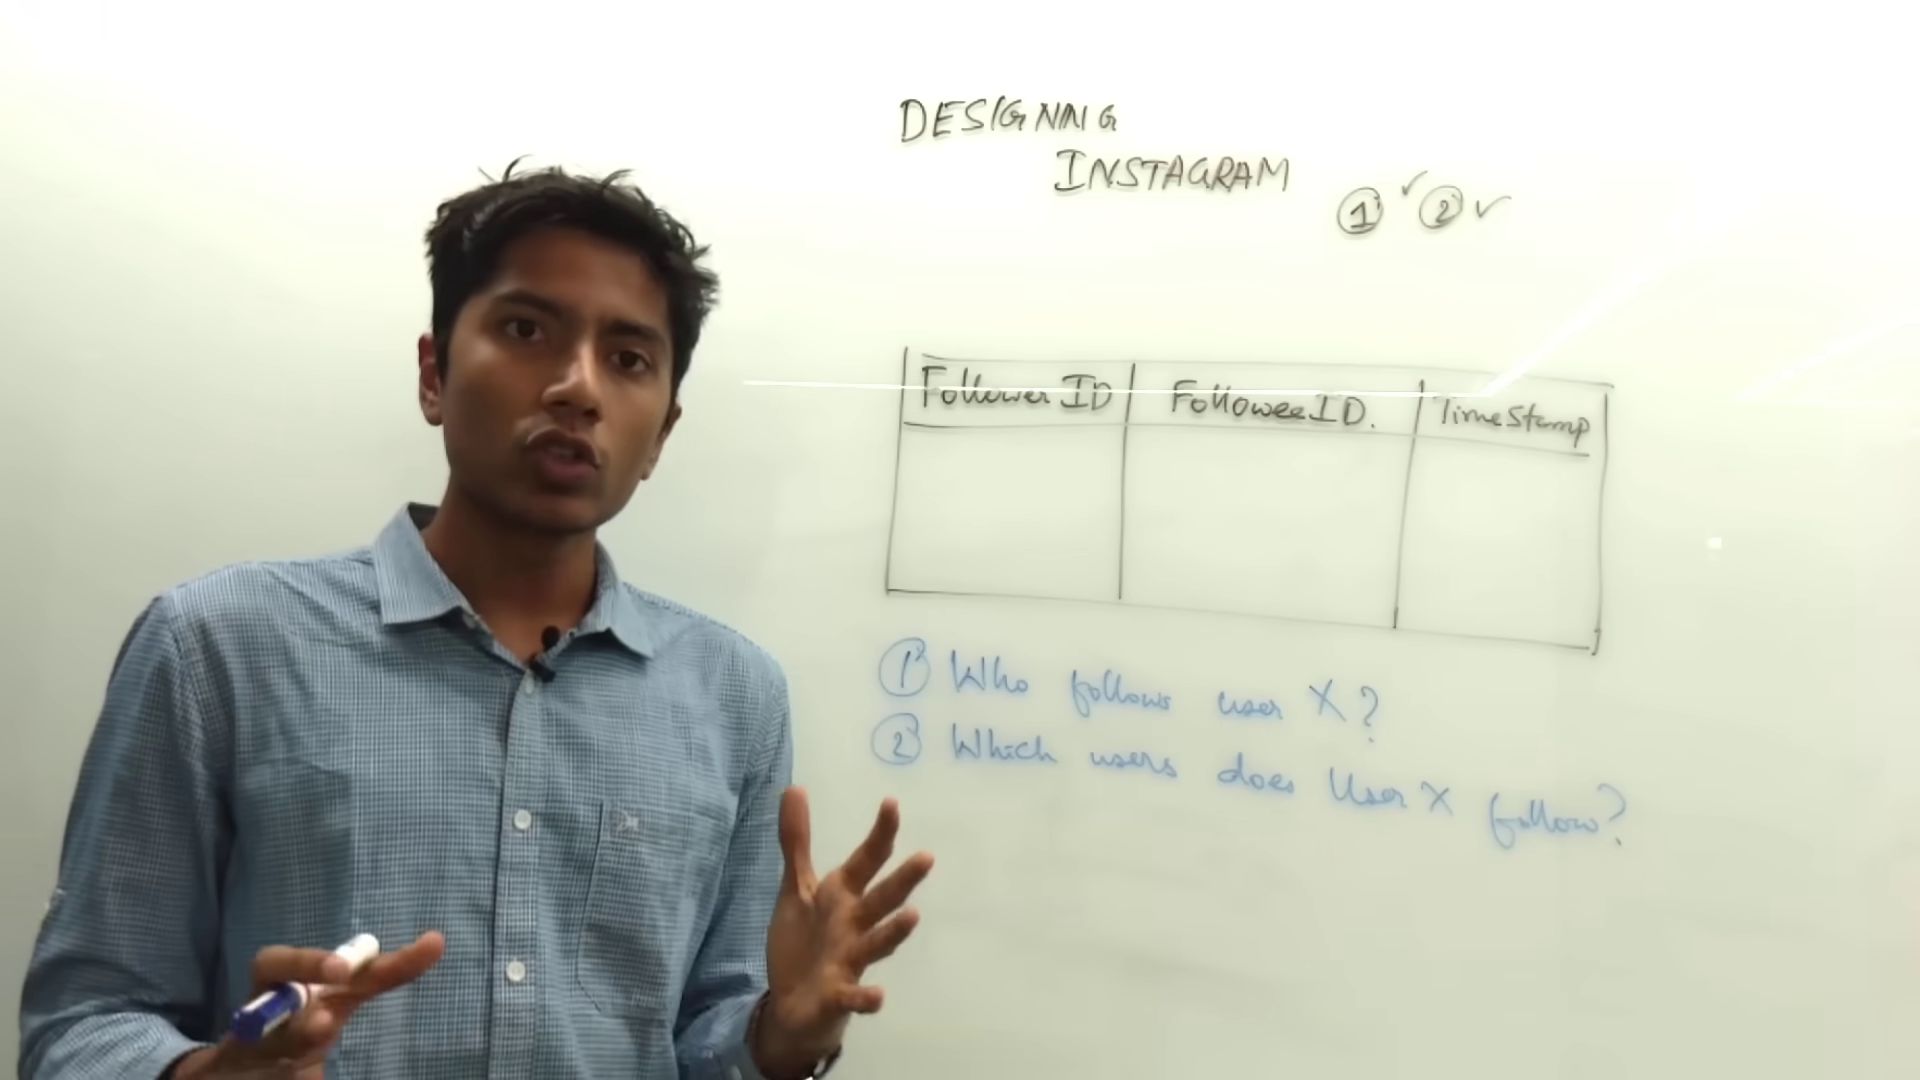 DESIGNING
INSTAGRAM
1 ✓ 2 ✓
Follower ID FolloweeID. TimeStamp
1 Who follows user X?
2 Which users does User X follow?